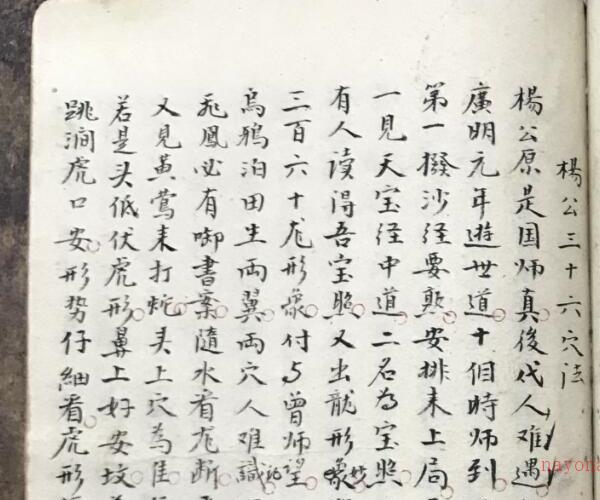 楊公三十六穴法
楊公原是国师真后代人难遇
廣明元年遊世道十個時师到
第一撥沙经要熟安排来上局
一見天宝经中道二名為宝照
有人读得吾宝照又出龍形像
三百六十龙形像付与曾师望
烏鴉泊田生両翼両穴人难識
飛鳳必有啣書案隨水看龙断
又見黄鶯来打蛇头上穴為佳
若是头低伏虎形鼻上好安坟
跳澗虎口安形势仔細看虎形
nayona